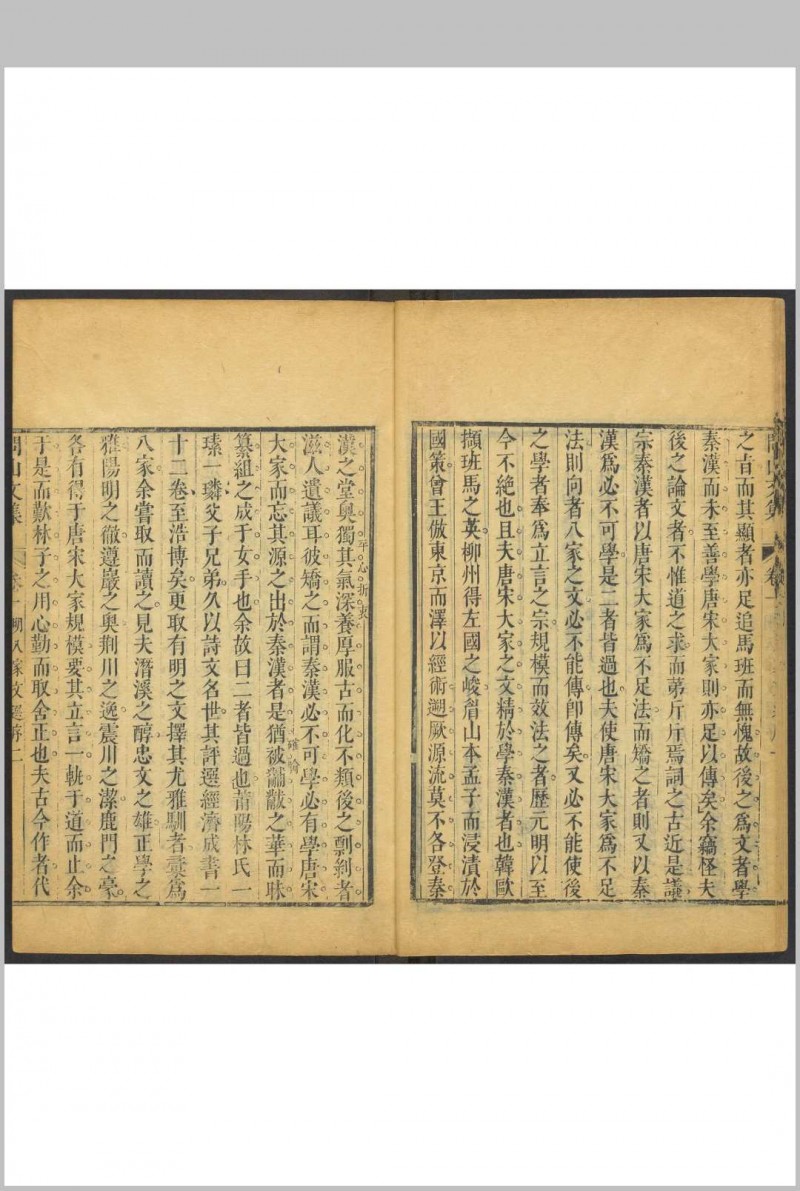 之旨而其顯者亦足追馬班而無愧故後之為文者學
秦漢而未至善學唐宋大家則亦足以傳矣余竊怪夫
後之論文者不惟道之求而第斤斤焉詞之古近是議
宗秦漢者以唐宋大家為不足法而矯之者則又以秦
漢為必不可學是二者皆過也夫使唐宋大家為不足
法則向者八家之文必不能傳卽傳矣又必不能使後
之學者奉為立言之宗規模而效法之者歷元明以至
今不絕也且夫唐宋大家之文精於學秦漢者也韓歐
擷班馬之英柳州得左國之峻眉山本孟子而浸漬於
國策曾王倣東京而澤以經術遡厥源流莫不各登秦
漢之堂奧獨其氣深養厚服古而化不類後之剽剝者
平心折衷
滋人遺議耳彼矯之而謂秦漢必不可學必有學唐宋
大家而忘其源之出於秦漢者是猶被黼黻之華而昧
確論
纂組之成于女手也余故曰二者皆過也莆陽林氏一
瑧一璘父子兄弟久以詩文名世其評選經濟成書一
十二卷至浩博矣更取有明之文擇其尤雅馴者彚為
八家余嘗取而讀之見夫潛溪之醇忠文之雄正學之
雅陽明之徹遵巖之奧荆川之逸震川之潔鹿門之豪
各有得于唐宋大家規模要其立言一軌于道而止余
于是而歎林子之用心勤而取舍正也夫古今作者代
文集 卷一 八家文選序 二